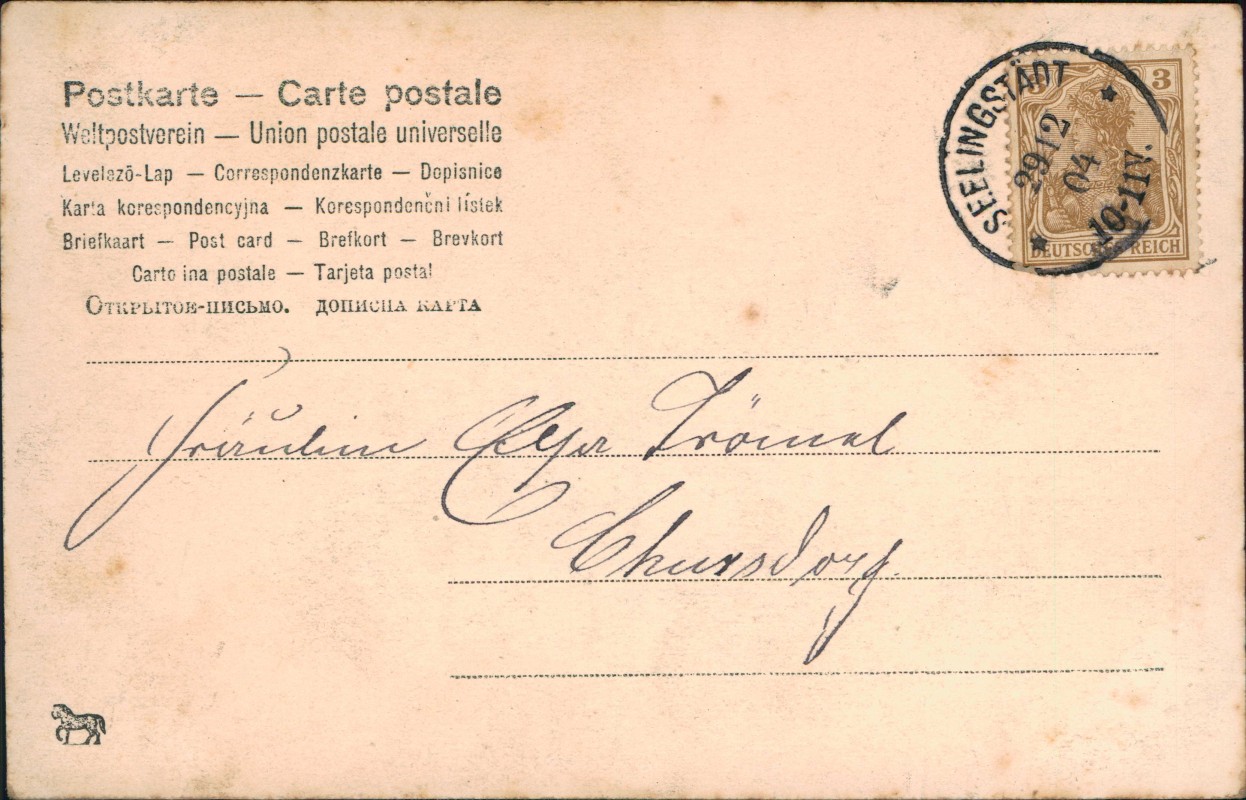 Postkarte — Carte postale
Weltpostverein — Union postale universelle
Levelező-Lap — Correspondenzkarte — Dopisnice
Karta korespondencyjna — Korespondenčni listek
Briefkaart — Post card — Brefkort — Brevkort
Carto ina postale — Tarjeta postal
Открытое-письмо. дописна карта
SEELINGSTÄDT
29 12
04
10-11V.
3
DEUTSCHES REICH
Fräulein Elsa Trömel
Chursdorf.